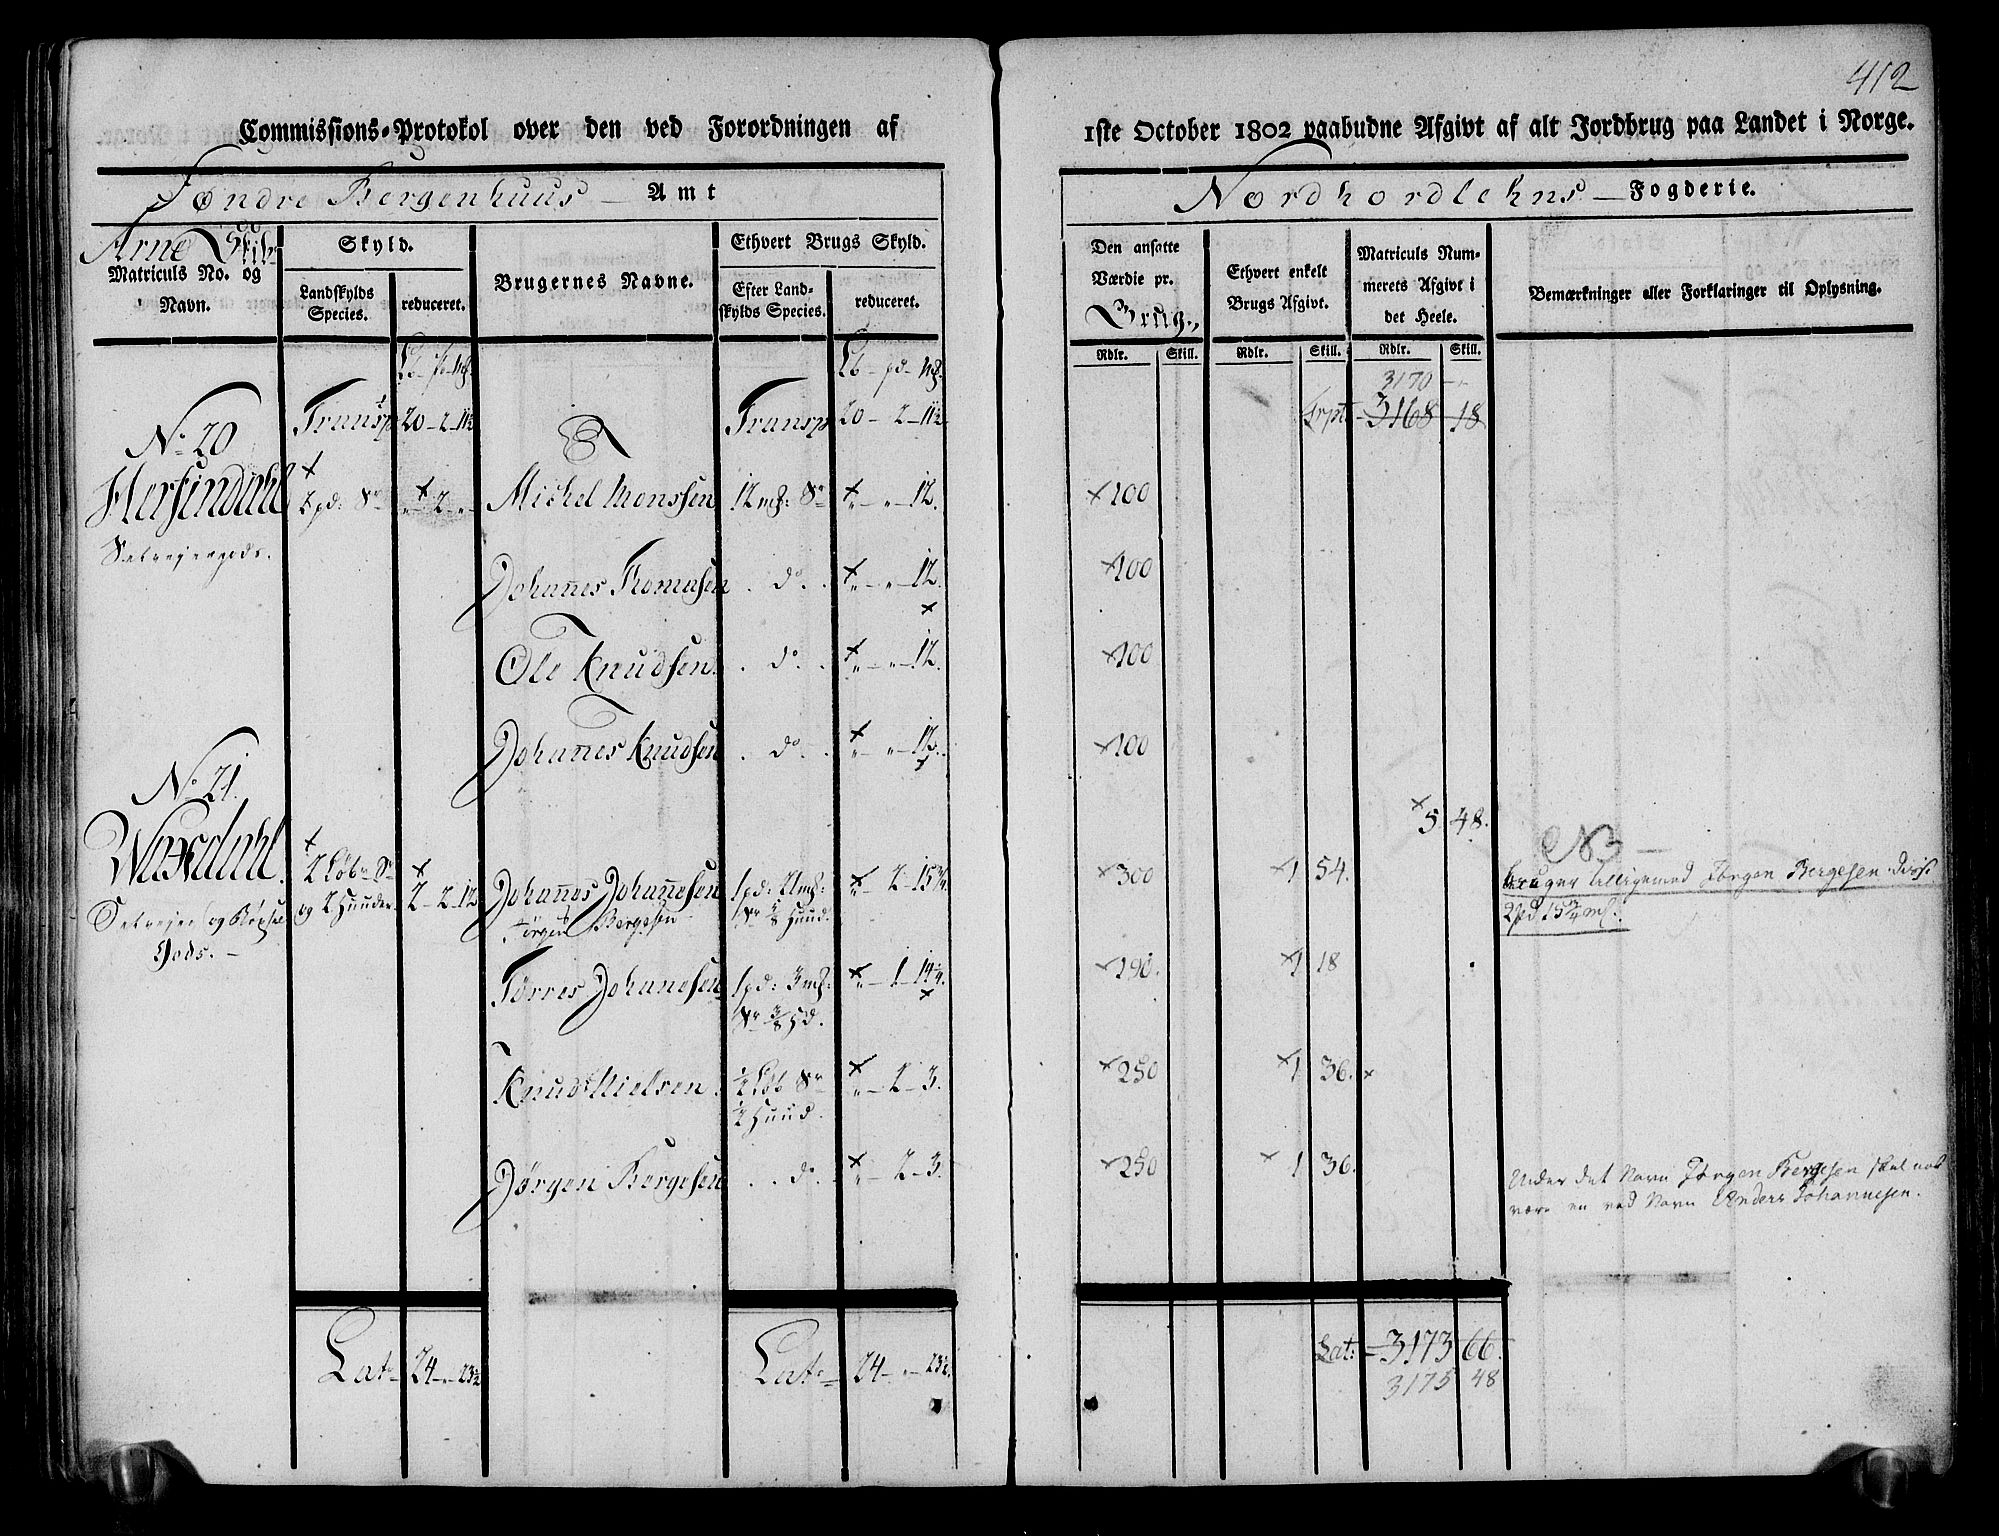 412
Commissions-Protokol over den ved Forordningen af 1ste October 1802 paabudne Afgivt af alt Jordbrug paa Landet i Norge.
Søndre Bergenhuus Amt
Nordhordlehns Fogderie.
Arne Skib
Matriculs No. og Navn.
Skyld.
Landskylds Species.
reduceret.
Brugernes Navne.
Ethvert Brugs Skyld.
Efter Landskylds Species.
reduceret.
Den ansatte Værdie pr. Brug.
Ethvert enkelt Brugs Afgivt.
Matriculs Nummerets Afgivt i det Heele.
Bemærkninger eller Forklaringer til Oplysning.
Rdlr. Skill. Rdlr. Skill. Rdlr. Skill.
3170
Transp 20-2-11½ Transp 20-2-11½ Trpt 3168 18
No 20
Hersindahl
Selvejergods.
2 pd: Sr „-2-„ Michel Monssen 12 mk: Sr „-„-12. 100
Johannes Thomasen do „-„-12. 100
Ole Knudsen do „-„-12. 100
Johannes Knudsen do „-„-12. 100
No 21.
5 48.
Waxdahl
Selvejer og Böxel Gods.
2 Löb Sr og 2 Huuder 2-2-12
NB
Johannes Johannesen 1 pd: 21 mk: Sr Huud. „-2-15¾. 300 1 54.
Jørgen Bergesen
bruger tilligemed Jörgen Bergesen disse
2 pd 15¾ mk.
Torres Johannesen 1 pd: 3 mk: Sr ⅜ Hd. „-1-14¼. 190. 1 18
Knud Nielsen ½ Löb Sr ½ Huud. „-2-3. 250 1 36.
Jörgen Bergesen do „-2-3. 250 1 36.
Under det Navn Jörgen Bergesen skal nok
være en ved Navn Anders Johannesen.
Lat 24-„-23½ Lat 24-„-23½. Lat: 3173 66.
3175 48